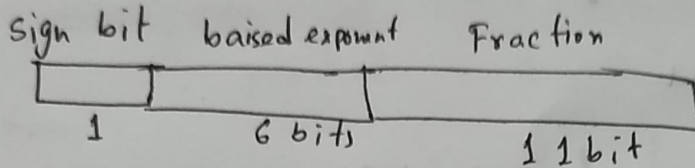 sign bit baised exponent Fraction
1 6 bits 11 bit